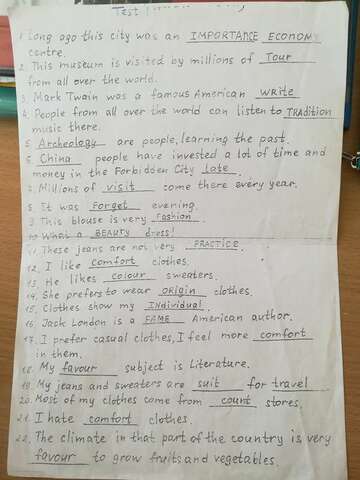 Test
1. Long ago this city was an IMPORTANCE ECONOMY
centre.
2. This museum is visited by millions of Tour
from all over the world.
3. Mark Twain was a famous American WRITE
4. People from all over the world can listen to TRADITION
music there.
5. Archeology are people, learning the past.
6. China people have invested a lot of time and
money in the Forbidden City late.
7. Millions of visit come there every year.
8. It was Forget evening.
9. This blouse is very Fashion.
10. What a BEAUTY dress!
11. These jeans are not very PRACTICE.
12. I like comfort clothes.
13. He likes colour sweaters.
14. She prefers to wear ORIGIN clothes.
15. Clothes show my INDIVIDUAL.
16. Jack London is a FAME American author.
17. I prefer casual clothes, I feel more comfort
in them.
18. My favour subject is Literature.
19. My jeans and sweaters are suit for travel
20. Most of my clothes come from count stores.
21. I hate comfort clothes.
22. The climate in that part of the country is very
favour to grow fruits and vegetables.